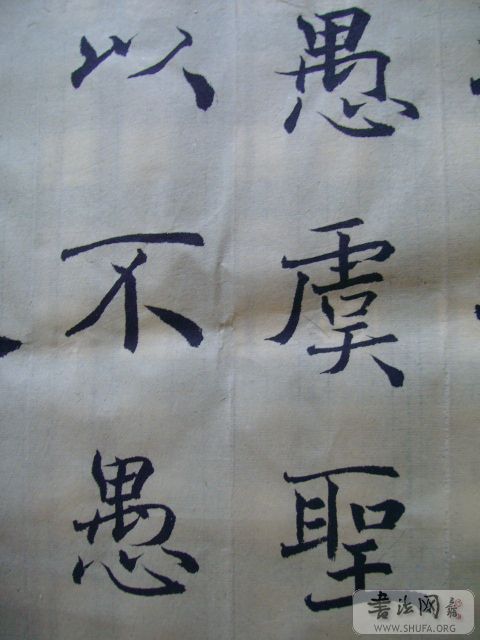 愚虞聖
以不愚
書法网
WWW.SHUFA.ORG